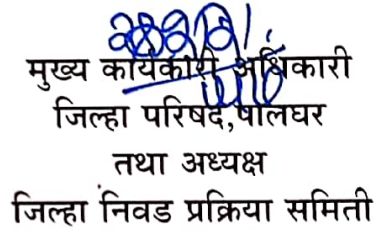 मुख्य कार्यकारी अधिकारी
जिल्हा परिषद,पालघर
तथा अध्यक्ष
जिल्हा निवड प्रक्रिया समिती